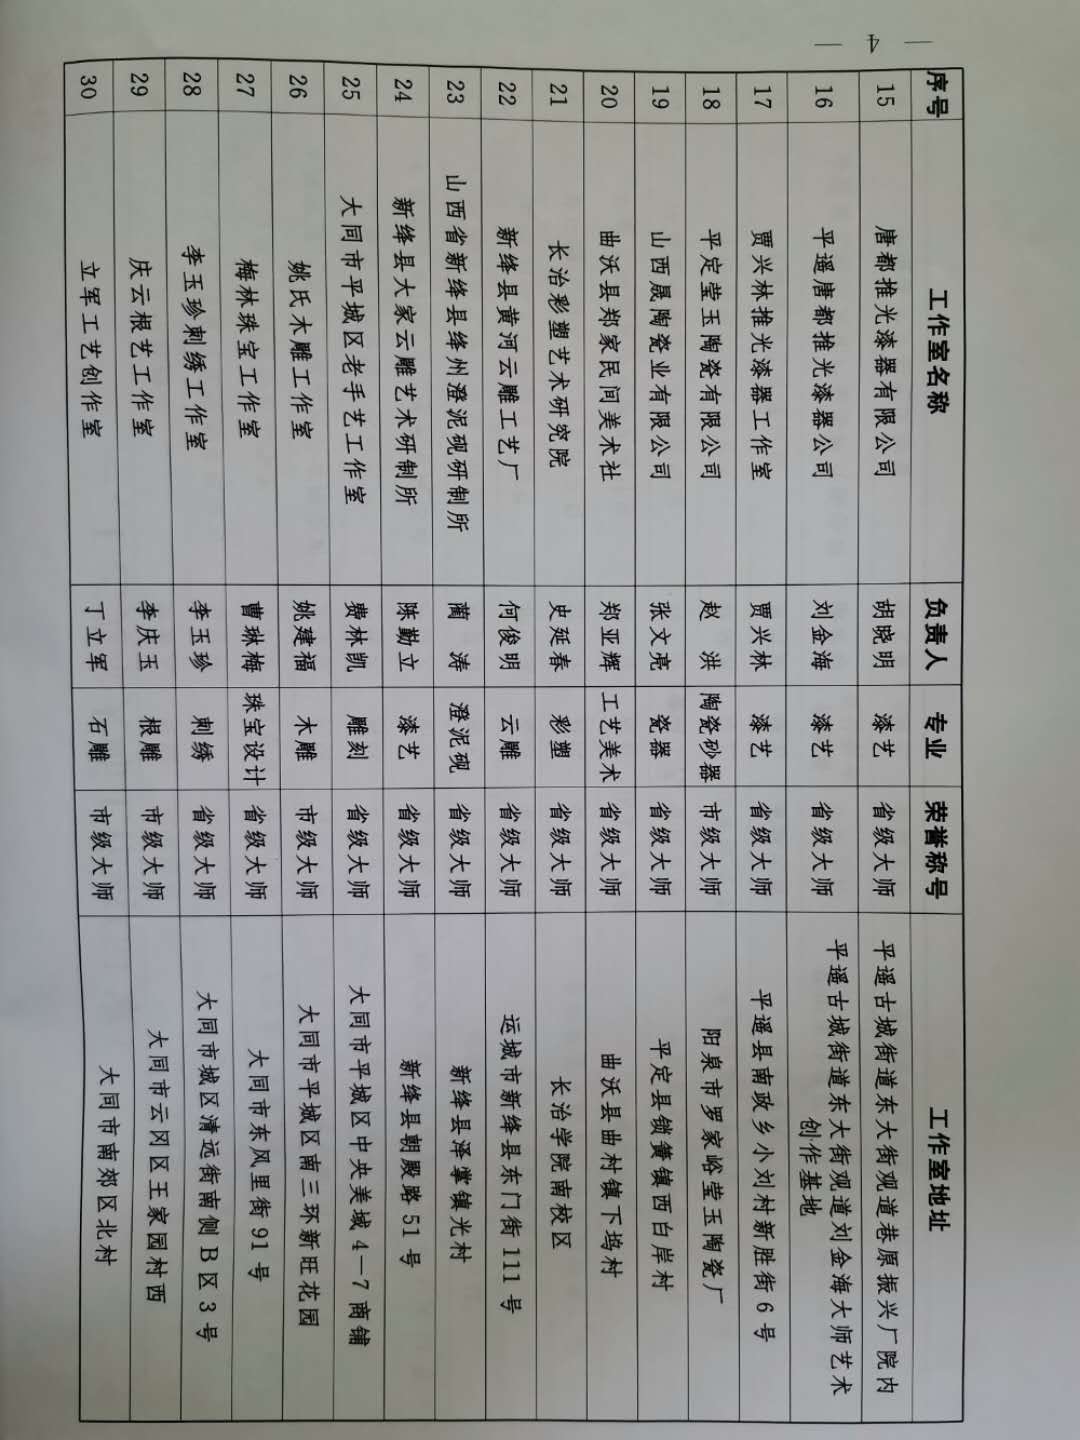 — 4 —
序号 工作室名称 负责人 专业 荣誉称号 工作室地址
15 唐都推光漆器有限公司 胡晓明 漆艺 省级大师 平遥古城街道东大街观道巷原振兴厂院内
16 平遥唐都推光漆器公司 刘金海 漆艺 省级大师 平遥古城街道东大街观道刘金海大师艺术
创作基地
17 贾兴林推光漆器工作室 贾兴林 漆艺 省级大师 平遥县南政乡小刘村新胜街6号
18 平定莹玉陶瓷有限公司 赵 洪 陶瓷砂器 市级大师 阳泉市罗家峪莹玉陶瓷厂
19 山西晟陶瓷业有限公司 张文亮 瓷器 省级大师 平定县锁簧镇西白岸村
20 曲沃县郑家民间美术社 郑亚辉 工艺美术 省级大师 曲沃县曲村镇下坞村
21 长治彩塑艺术研究院 史延春 彩塑 省级大师 长治学院南校区
22 新绛县黄河云雕工艺厂 何俊明 云雕 省级大师 运城市新绛县东门街111号
23 山西省新绛县绛州澄泥砚研制所 蔺 涛 澄泥砚 省级大师 新绛县泽掌镇光村
24 新绛县大家云雕艺术研制所 陈勤立 漆艺 省级大师 新绛县朝殿路51号
25 大同市平城区老手艺工作室 费林凯 雕刻 省级大师 大同市平城区中央美域4—7商铺
26 姚氏木雕工作室 姚建福 木雕 市级大师 大同市平城区南三环新旺花园
27 梅林珠宝工作室 曹琳梅 珠宝设计 省级大师 大同市东风里街91号
28 李玉珍刺绣工作室 李玉珍 刺绣 省级大师 大同市城区清远街南侧B区3号
29 庆云根艺工作室 李庆玉 根雕 市级大师 大同市云冈区王家园村西
30 立军工艺创作室 丁立军 石雕 市级大师 大同市南郊区北村